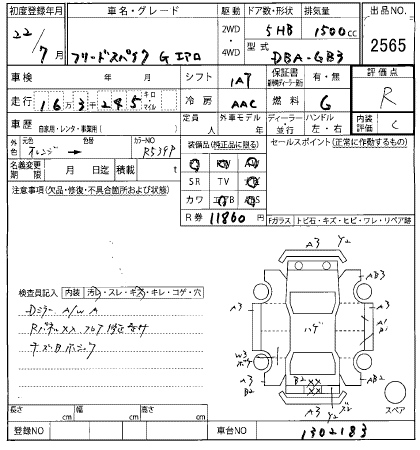 初度登録年月 車名・グレード 駆動 ドア数・形状 排気量 出品NO.
22/7月 フリードスパイク G エアロ 2WD・4WD 5HB 1500cc 2565
型式 DBA-GB3
車検 年 月 シフト IAT 保証書 有・無 評価点
走行 16万3千245 キロ・マイル 冷房 AAC 燃料 G R
車歴 自家用・レンタ・事業用( ) 定員 人 外車モデル 年 ディーラー・並行 ハンドル 左・右 内装評価 C
外色 元色 オレンジ → 色替 カラーNO R539P 装備品(純正品に限る) セールスポイント(正常に作動するもの)
名義変更期限 月 日迄 積載 t
SR TV
注意事項(欠品・修復・不具合箇所および状態) カワ エアB ABS
R券 11860 円
Fガラス トビ石・キズ・ヒビ・ワレ・リペア跡
A3 Y2
A3 AB3
検査員記入 内装 汚れ・スレ・キズ・キレ・コゲ・穴
Dミラー A/W A
RパネルXX フロア修正有サ
A3 ハゲ A3 A1
W3
A3 B2 B2 XX AB2
A3 Y2
スペア
長さ cm 幅 cm 高さ cm
登録NO 車台NO 1302183